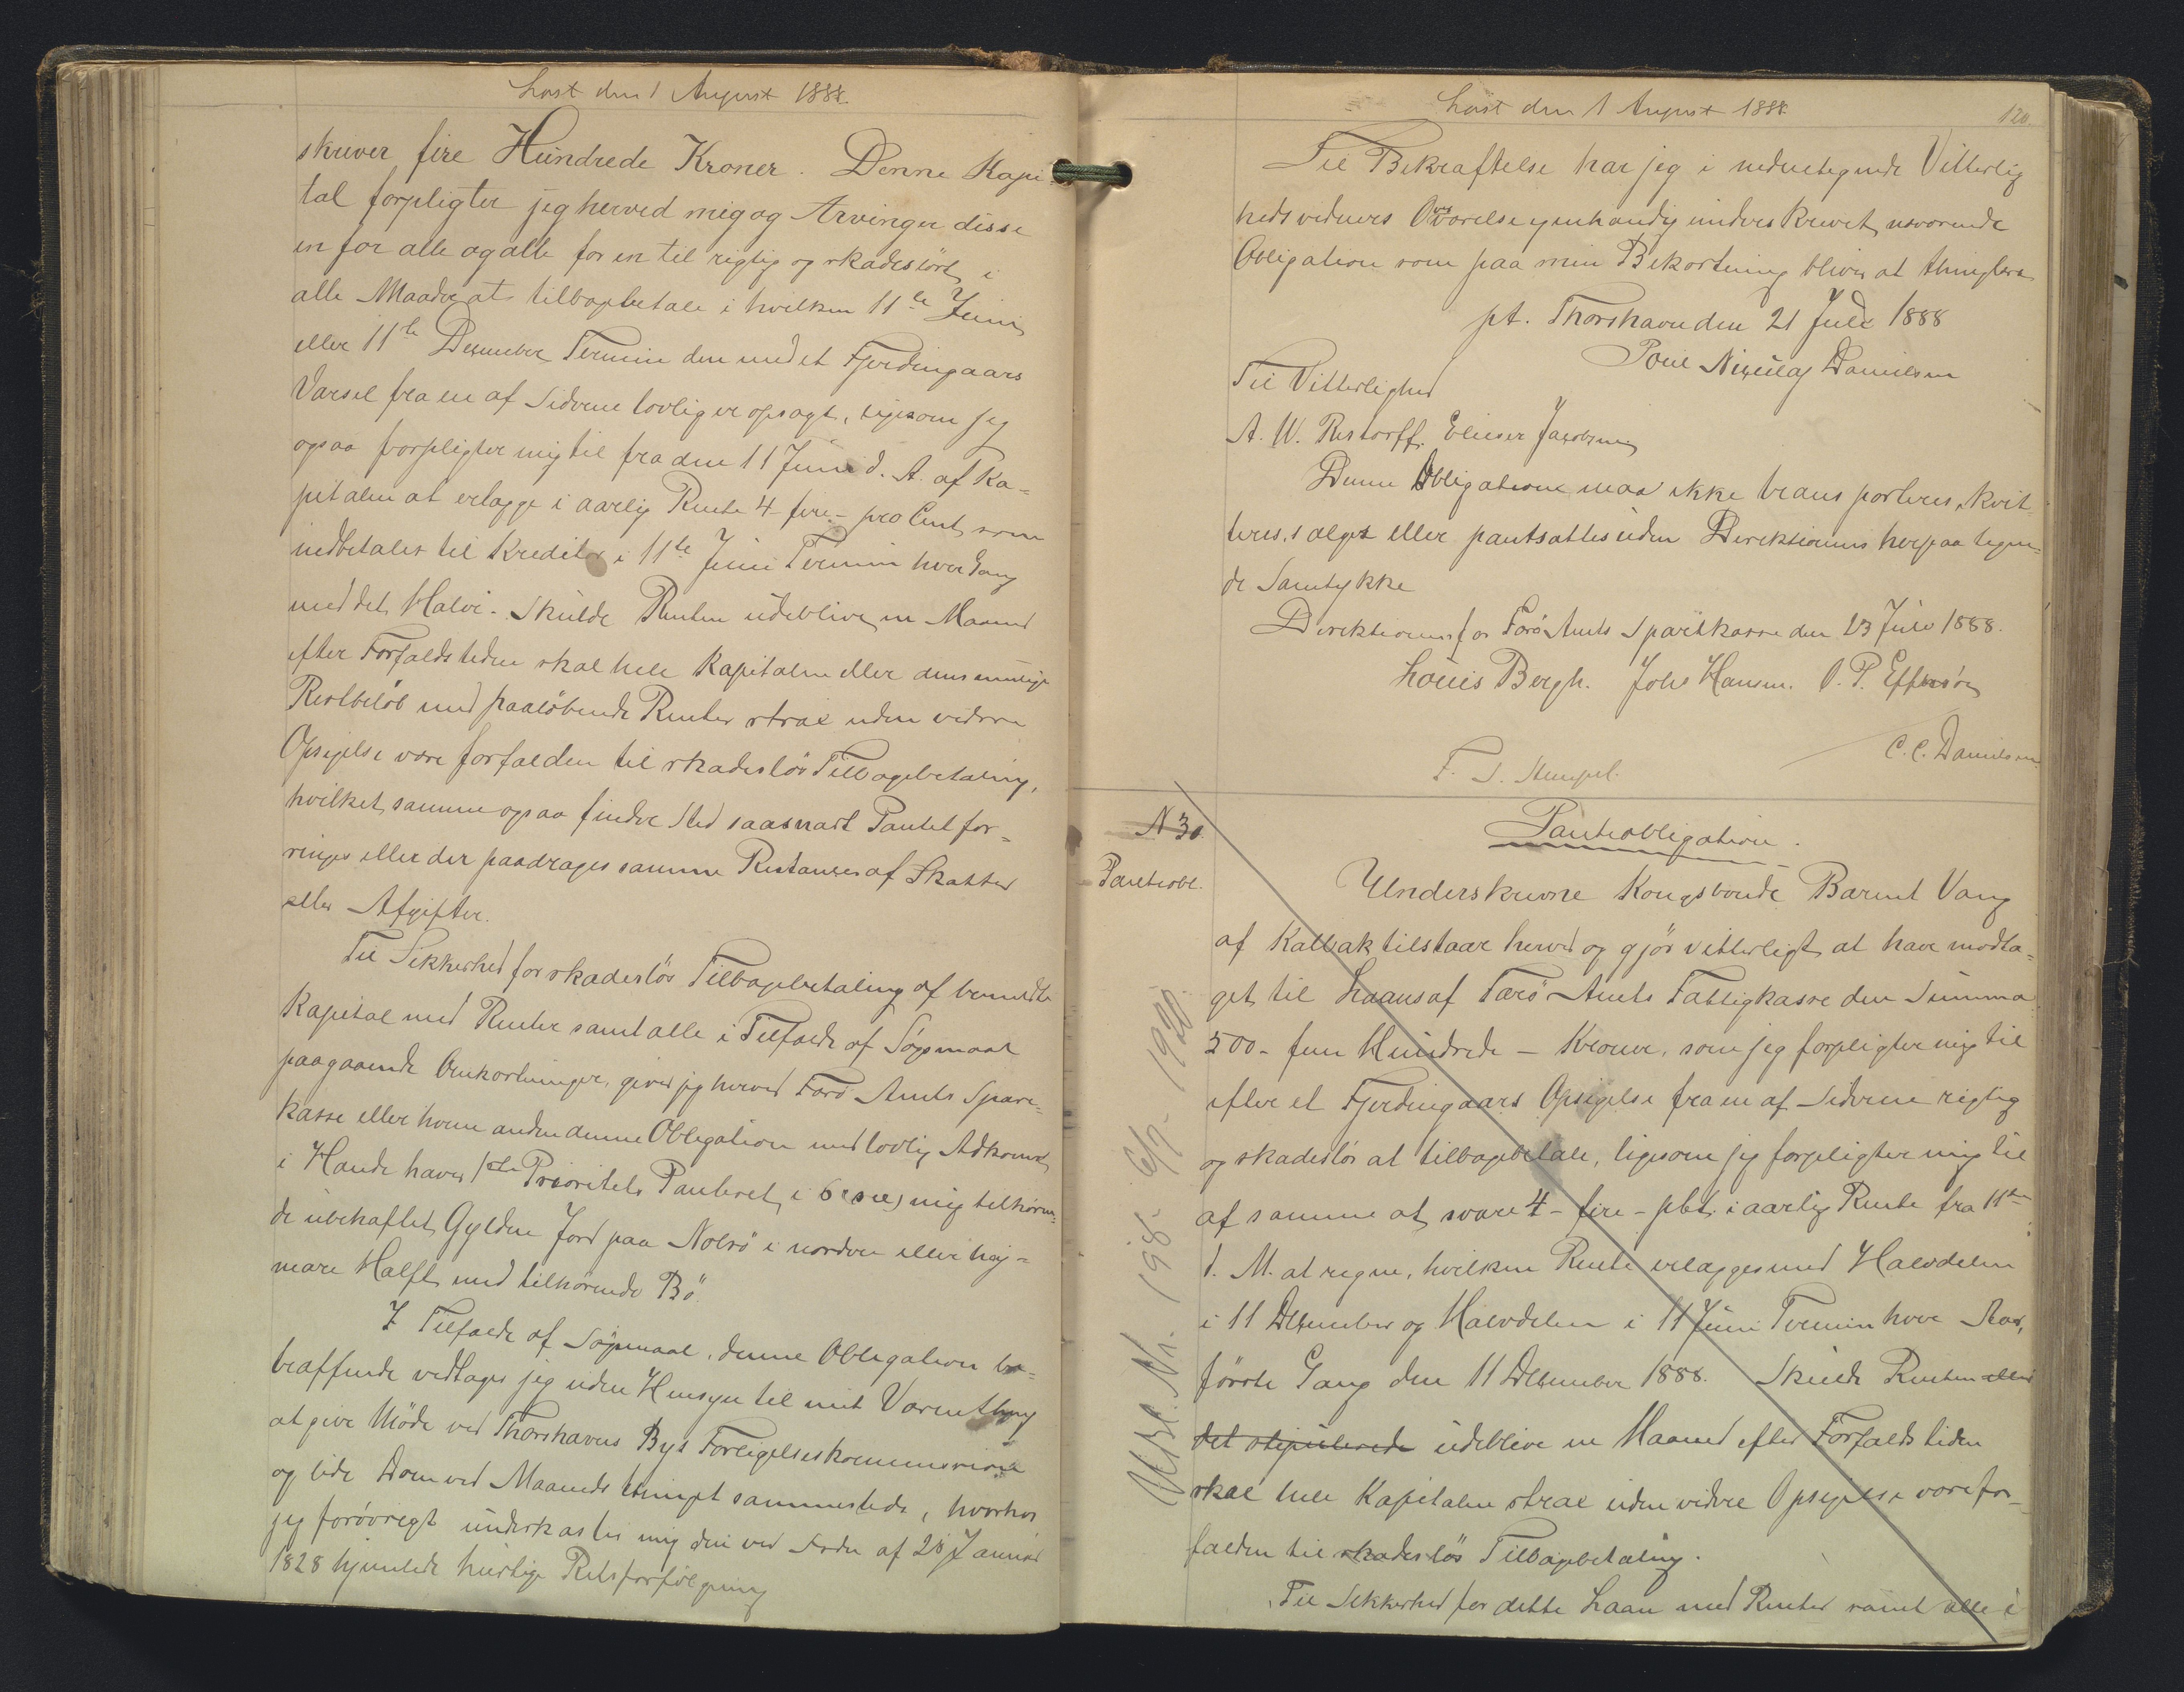 Læst den 1 August 1888.
skriver fire Hundrede Kroner. Denne Kapi-
tal forpligter jeg herved mig og Arvinger disse
en for alle og alle for en til rigtig og skadeslöst i
alle Maader at tilbagebetale i hvilken 11te Juni
eller 11te December Termin den med et Fjerdingaars
Varsel fra en af Siderne lovlig er opsagt, ligesom jeg
ogsaa forpligter mig til fra den 11 Juni d. A. af Ka-
pitalen at erlægge i aarlig Rente 4 - fire - pro Cent, som
indbetales til Kreditor i 11te Juni Termin hver Gang
med det Halve. Skulde Renten udeblive en Maaned
efter Forfaldstiden skal hele Kapitalen eller dens mulige
Restbelöb med paalöbende Renter strax uden videre
Opsigelse være forfalden til skadeslös Tilbagebetaling,
hvilket samme ogsaa finder Sted saasnart Pantet for-
ringes eller der paadrages samme Restancer af Skatter
eller Afgifter.
Til Sikkerhed for skadeslös Tilbagebetaling af bemeldte
Kapital med Renter samt alle i Tilfælde af Søgsmaal
paagaaende Omkostninger, giver jeg herved Færö Amts Spare-
kasse eller hvem anden denne Obligation med lovlig Adkomst
i Hænde haver 1ste Prioritets Panteret i 6 (sex) mig tilhøren-
de ubehæftet Gylden Jord paa Nolsö i nordre eller høj-
mare Halft med tilhörende Bö.
I Tilfælde af Søgsmaal, denne Obligation be-
træffende vedtager jeg uden Hensyn til mit Værnething
at give Möde ved Thorshavns Bys Forligelseskommission
og lide Dom ved Maanedsthinget sammesteds, hvorhos
jeg forövrigt underkaster mig den ved Frdn af 28 Januar
1828 hjemlede hurtige Retsforfölgning
Læst den 1 August 1888.
120.
Til Bekræftelse har jeg i nedentegnede Vitterlig
hedsvidners Overværelse egenhændig underskrevet nærværende
Obligation som paa min Bekostning bliver at thinglæse
pt. Thorshavn den 21 Juli 1888
Poul Nicolaj Danielsen
Til Vitterlighed
A. W. Restorff. Elieser Jacobsen
Denne Obligation maa ikke transporteres, kvit-
teres, sælges eller pantsættes uden Direktionens herpaa tegne-
de Samtykke
Direktionen for Færö Amts Sparekasse den 23 Juli 1888.
Louis Bergh. Johs Hansen. O. P. Effersöe
C. C. Danielsen
T. S. Stempel.
N 30.
Panteobl.
Panteobligation.
Underskrevne Kongsbonde Barent Vang
af Kalbak tilstaar herved og gjör vitterligt at have modta-
get til Laans af Færö Amts Fattigkasse den Summa
500 - fem Hundrede - Kroner, som jeg forpligter mig til
efter et Fjerdingaars Opsigelse fra en af Siderne rigtig
og skadeslös at tilbagebetale, ligesom jeg forpligter mig til
af samme at svare 4 - fire - pCt. i aarlig Rente fra 11te
d. M. at regne, hvilken Rente erlægges med Halvdelen
i 11 December og Halvdelen i 11 Juni Termin hver Aar,
förste Gang den 11 December 1888. Skulde Renten eller
det stipulerede udeblive en Maaned efter Forfaldstiden
skal hele Kapitalen strax uden videre Opsigelse være for-
falden til skadeslös Tilbagebetaling.
Til Sikkerhed for dette Laan med Renter samt alle i
Udsl. Nr. 198. 6/7 - 1920.